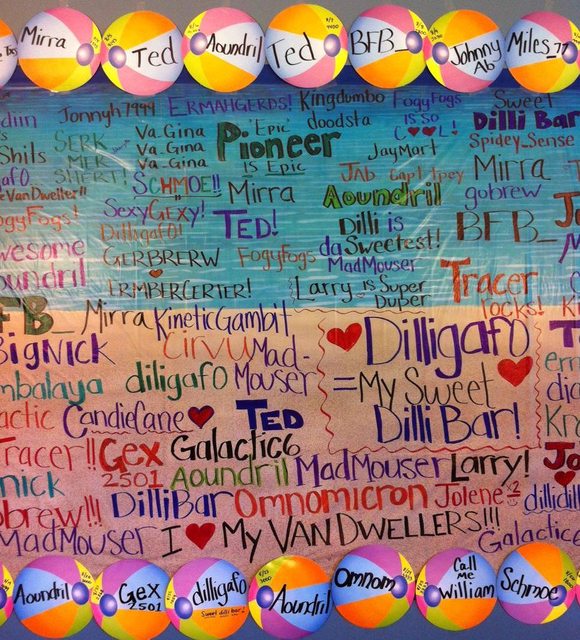 Mirra
Ted
Aoundril
Ted
BFB_
Johnny Ab
Miles_77
Jonnyh7994
ERMAHGERDS!
Kingdumbo
FogyFogs
IS SO
C❤❤L!
Sweet
Dilli Bar
doodsta
Va-Gina
Va-Gina
Va-Gina
'Epic'
Pioneer
IS EPIC
JayMart
Spidey_Sense
Shils
SERK
MER
SHERT!
SCHMOE!!
Mirra
JAb
Mirra
VanDweller!!
Aoundril
gobrew
ogyFogs!
SexyGexy!
Dilligafo!
TED!
Dilli is
da Sweetest!
BFB_
wesome
oundril
GERBRERW
FogyFogs
MadMouser
ERMBERCERTER!
Larry is Super
Duper
Tracer
rocks!
FB_
Mirra
KineticGambit
BigNick
CirvU
Mad-
Mouser
❤ Dilligafo
=My Sweet ❤
Dilli Bar!
mbalaya
diligafo
actic
CandieCane❤
TED
Tracer!!
Gex
2501
Galactic6
Aoundril
MadMouser
Larry!
nick
obrew!!!
DilliBar
Omnomicron
Jolene<3
dillidill
MadMouser
I ❤ My VANDWELLERS!!!
Galactic
Aoundril
Gex
2501
dilligafo
Sweet dilli bar!
Aoundril
Omnom
Call
Me
William
Schmoe